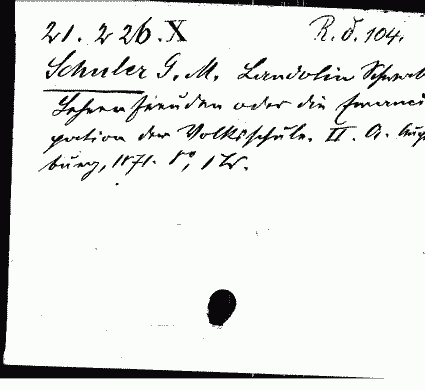 21.226.X R.d.104.
Schuler G. M. Landolin Schwab
Lehrerfreuden oder die Emanci
pation der Volksschule. II. A. Augs
burg, 1871. 8°, 1 Bd.